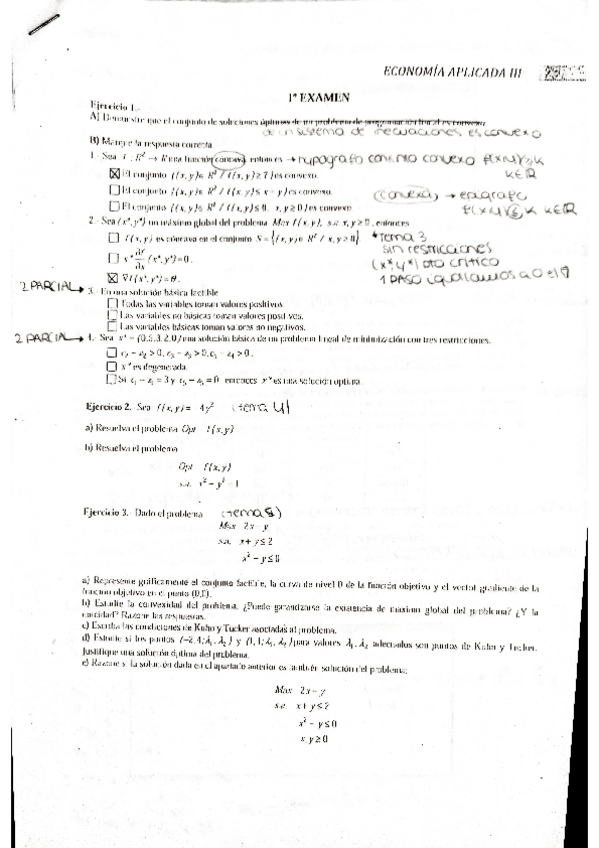 ECONOMÍA APLICADA III
1º EXAMEN
Ejercicio 1.-
A) Demuestre que el conjunto de soluciones óptimas de un problema de programación lineal es convexo.
de un sistema de inecuaciones es convexo
B) Marque la respuesta correcta
1.- Sea f : R² → R una función cóncava, entonces → hipografo conjunto convexo f(x,y) ≥ K
K∈R
☒ El conjunto {(x,y)∈ R² / f(x,y) ≥ 7} es convexo.
☐ El conjunto {(x,y)∈ R² / f(x,y) ≤ x - y} es convexo. (convexa) → epigrafo
☐ El conjunto {(x,y)∈ R² / f(x,y) ≤ 0, x,y ≥ 0} es convexo. f(x,y) ≤ K K∈R
2.- Sea (x*,y*) un máximo global del problema Max f(x,y), s.a: x,y ≥ 0, entonces
☐ f(x,y) es cóncava en el conjunto S = {(x,y)∈ R² / x,y ≥ 0}. * Tema 3
sin restricciones
☐ x* ∂f/∂x (x*,y*) = 0. (x*,y*) pto crítico
☒ ∇f(x*,y*) = θ. 1 PASO igualamos a 0 el ∇
2 PARCIAL → 3.- En una solución básica factible
☐ Todas las variables toman valores positivos
☐ Las variables no básicas toman valores positivos.
☐ Las variables básicas toman valores no negativos.
2 PARCIAL → 4.- Sea x* = (0,5,3,2,0) una solución básica de un problema lineal de minimización con tres restricciones.
☐
☐ x* es degenerada.
☐ Si c₁ - z₁ = 3 y c₅ - z₅ = 0 entonces x* es una solución óptima.
Ejercicio 2.- Sea f(x,y) = 4y² (tema 4)
a) Resuelva el problema Opt f(x,y)
b) Resuelva el problema
Opt f(x,y)
s.a: x² - y² = 1
Ejercicio 3.- Dado el problema (tema 5)
Max 2x - y
s.a: x + y ≤ 2
x² - y ≤ 0
a) Represente gráficamente el conjunto factible, la curva de nivel 0 de la función objetivo y el vector gradiente de la
función objetivo en el punto (0,0).
b) Estudie la convexidad del problema. ¿Puede garantizarse la existencia de máximo global del problema? ¿Y la
unicidad? Razone las respuestas.
c) Escriba las condiciones de Kuhn y Tucker asociadas al problema.
d) Estudie si los puntos (-2,4;λ₁,λ₂) y (1,1;λ₁,λ₂) para valores λ₁,λ₂ adecuados son puntos de Kuhn y Tucker.
Justifique una solución óptima del problema.
e) Razone si la solución dada en el apartado anterior es también solución del problema:
Max 2x - y
s.a: x + y ≤ 2
x² - y ≤ 0
x,y ≥ 0